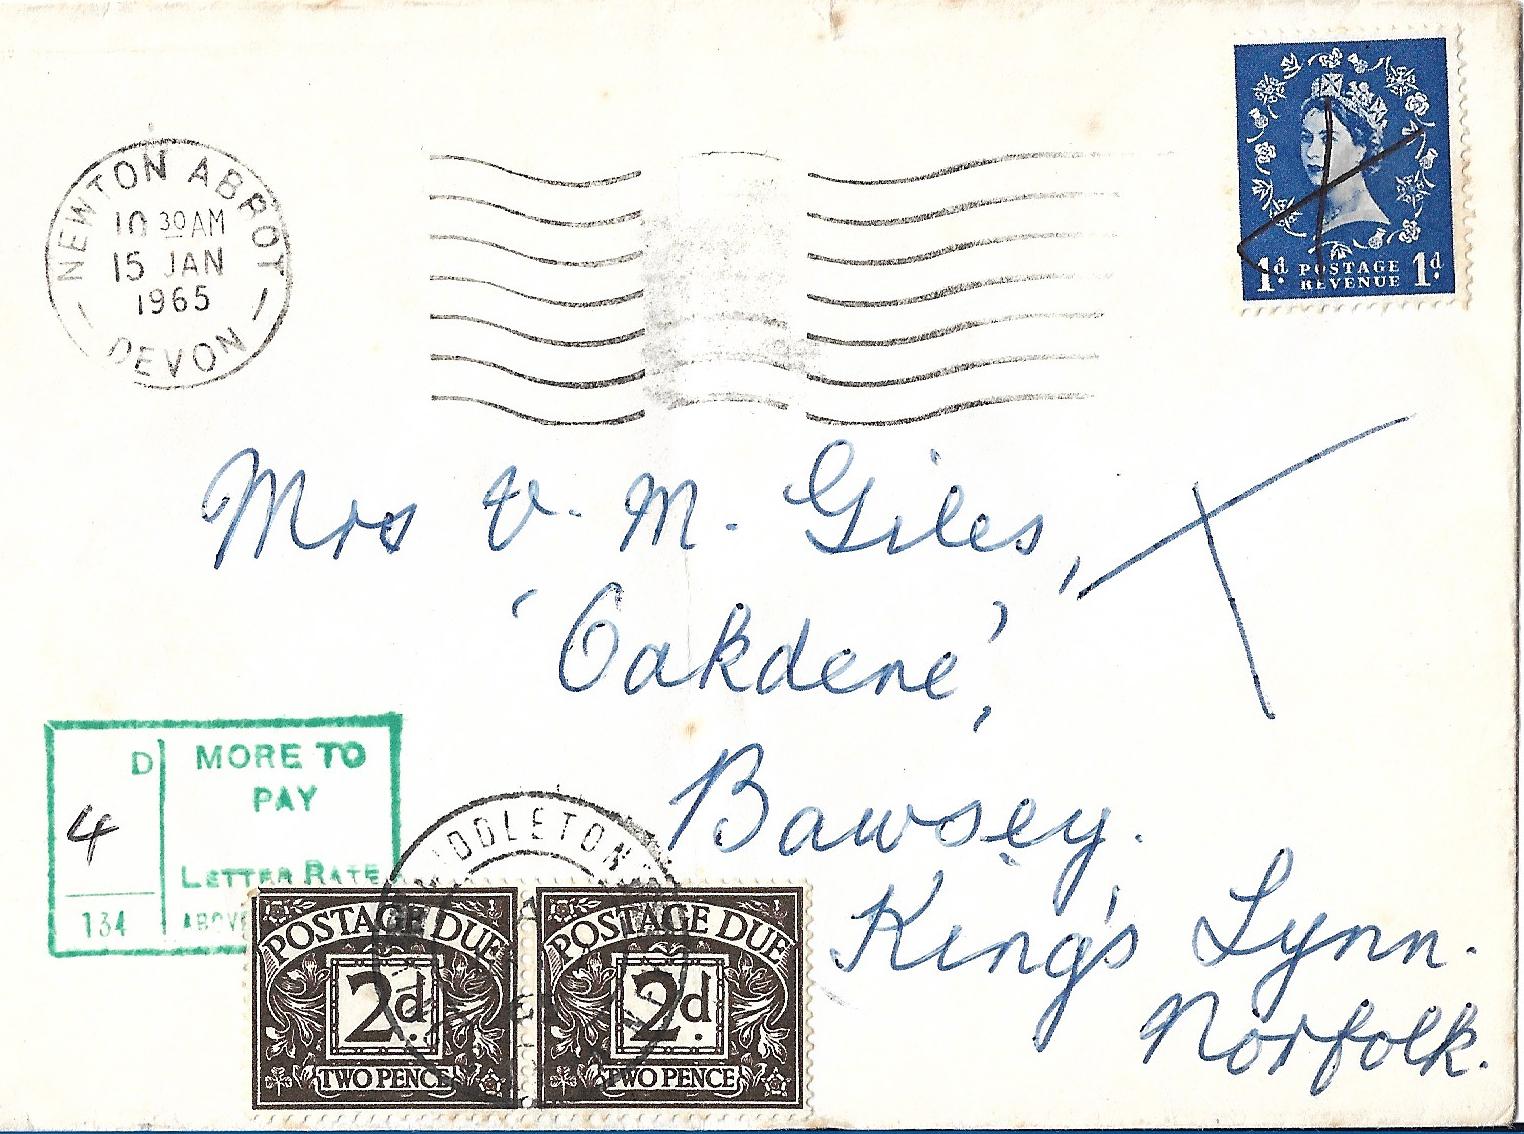 NEWTON ABBOT
10 30 AM
15 JAN
1965
DEVON
1d. POSTAGE REVENUE 1d.
Mrs V. M. Giles,
'Oakdene',
Bawsey.
King's Lynn.
Norfolk.
4 D
134
MORE TO
PAY
LETTER RATE
ABOVE
MIDDLETON
POSTAGE DUE
2d.
TWO PENCE
POSTAGE DUE
2d.
TWO PENCE